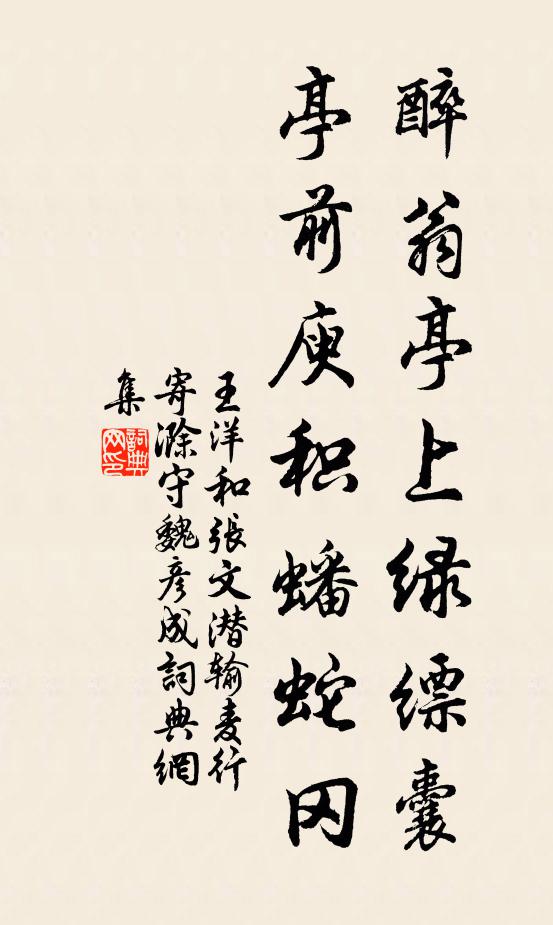 醉翁亭上绿缥囊
亭前庾积蟠蛇冈
王洋和張文潜输麦行
寄滁守魏彦成詞典網
集
詞典网印